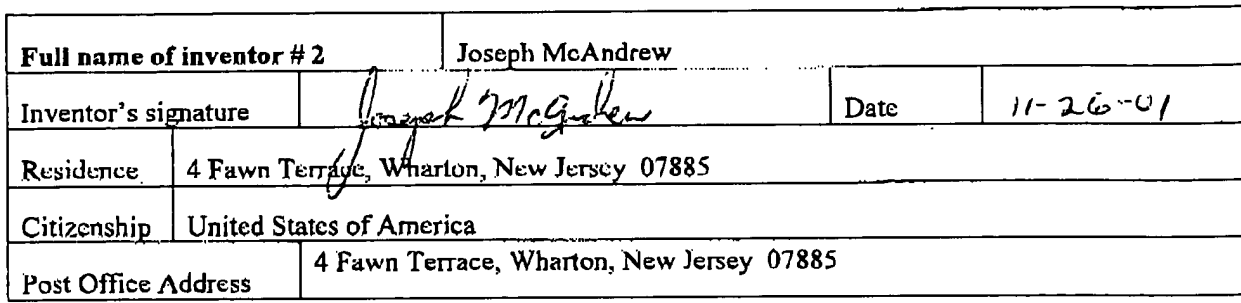 Full name of inventor # 2 Joseph McAndrew
Inventor's signature Joseph McAndrew Date 11-26-01
Residence 4 Fawn Terrace, Wharton, New Jersey 07885
Citizenship United States of America
Post Office Address 4 Fawn Terrace, Wharton, New Jersey 07885